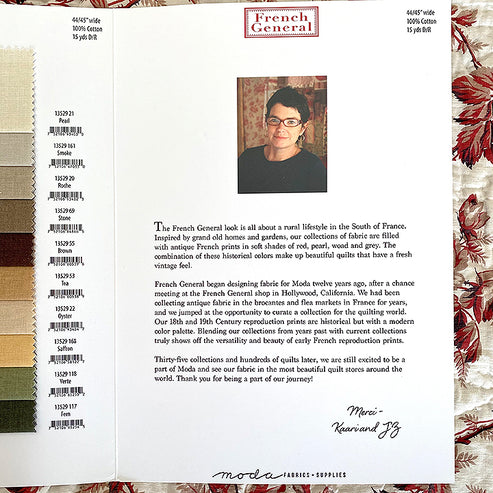 44/45" wide
100% Cotton
15 yds D/R
French
General
44/45" wide
100% Cotton
15 yds D/R
13529 21
Pearl
13529 161
Smoke
13529 20
Roche
13529 69
Stone
13529 55
Brown
13529 53
Tea
13529 22
Oyster
13529 168
Saffron
13529 118
Verte
13529 117
Fern
The French General look is all about a rural lifestyle in the South of France.
Inspired by grand old homes and gardens, our collections of fabric are filled
with antique French prints in soft shades of red, pearl, wood and grey. The
combination of these historical colors make up beautiful quilts that have a fresh
vintage feel.
French General began designing fabric for Moda twelve years ago, after a chance
meeting at the French General shop in Hollywood, California. We had been
collecting antique fabric in the brocantes and flea markets in France for years,
and we jumped at the opportunity to curate a collection for the quilting world.
Our 18th and 19th Century reproduction prints are historical but with a modern
color palette. Blending our collections from years past with current collections
truly shows off the versatility and beauty of early French reproduction prints.
Thirty-five collections and hundreds of quilts later, we are still excited to be a
part of Moda and see our fabric in the most beautiful quilt stores around the
world. Thank you for being a part of our journey!
Merci-
Kaari and JZ
moda FABRICS + SUPPLIES